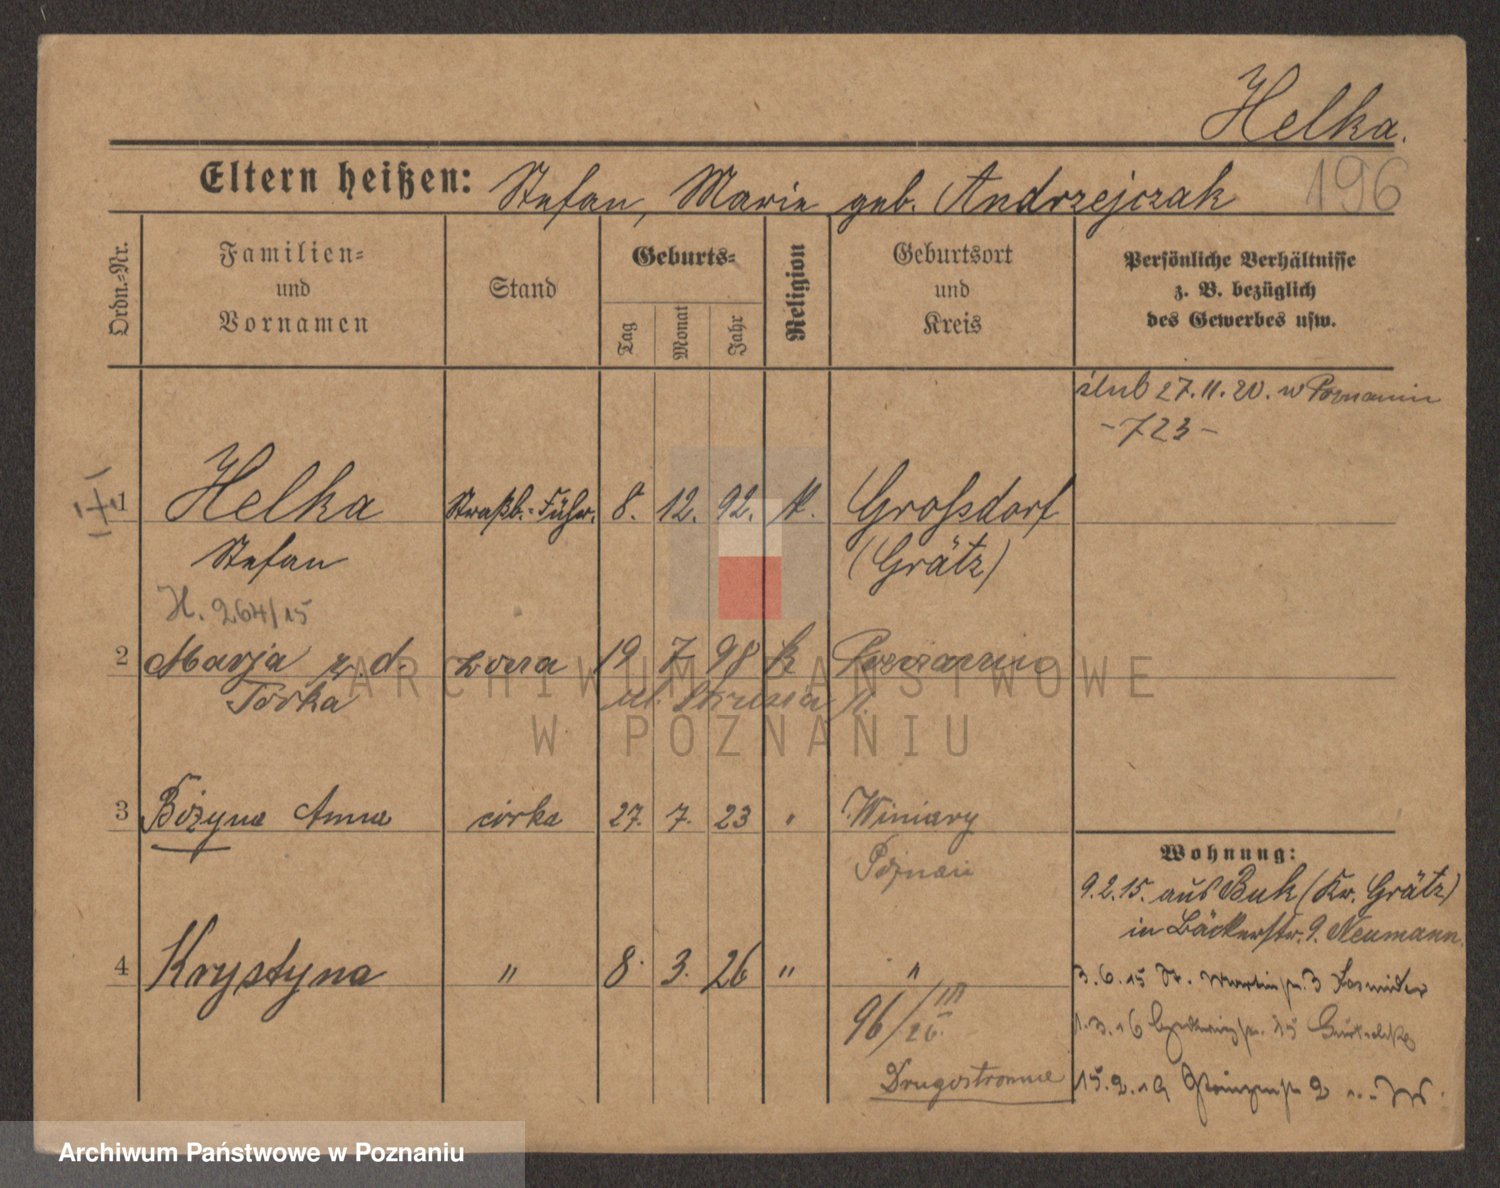 Helka.
Eltern heißen: Stefan, Marie geb. Andrzejczak
196
Ordn.-Nr.
Familien- und Vornamen
Stand
Geburts-
Tag
Monat
Jahr
Religion
Geburtsort und Kreis
Persönliche Verhältnisse
z. B. bezüglich
des Gewerbes usw.
ślub 27.11.20. w Poznaniu
-723-
1 Helka Straßb.-Führ. 8. 12. 92. k. Großdorf
Stefan (Grätz)
H. 264/15
2 Marja z d. żona 19 7 98 k Poznaniu
Torka ul.
3 Bożyna Anna córka 27. 7. 23 " Winiary
Poznań
4 Krystyna " 8. 3. 26 " "
96/III 26.
Drugostronnie
Wohnung:
9.2.15. aus Buk (Kr. Grätz)
in Bäckerstr. 9. Neumann.
3.6.15 St. Martinstr. 3
1.3.16
15.2.19 2
ARCHIWUM PAŃSTWOWE
W POZNANIU
Archiwum Państwowe w Poznaniu